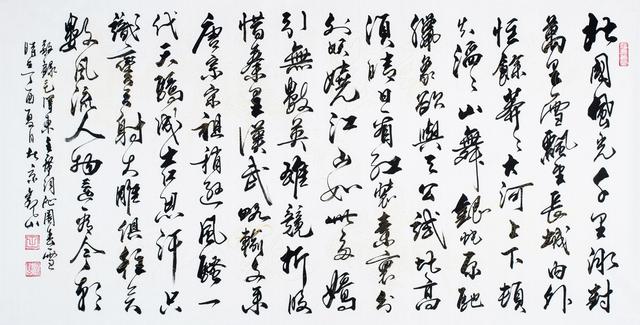 北國風光千里冰封
萬里雪飄望長城内外
惟餘莽々大河上下頓
失滔々山舞銀蛇原馳
臘象欲與天公試比高
須晴日看紅裝素裹分
外妖嬈江山如此多嬌
引無數英雄競折腰
惜秦皇漢武略輸文采
唐宗宋祖稍遜風騷一
代天驕成吉思汗只
識彎弓射大雕俱往矣
數風流人物還看今朝
敬錄毛澤東主席詞沁園春雪
時在丁酉夏月北京